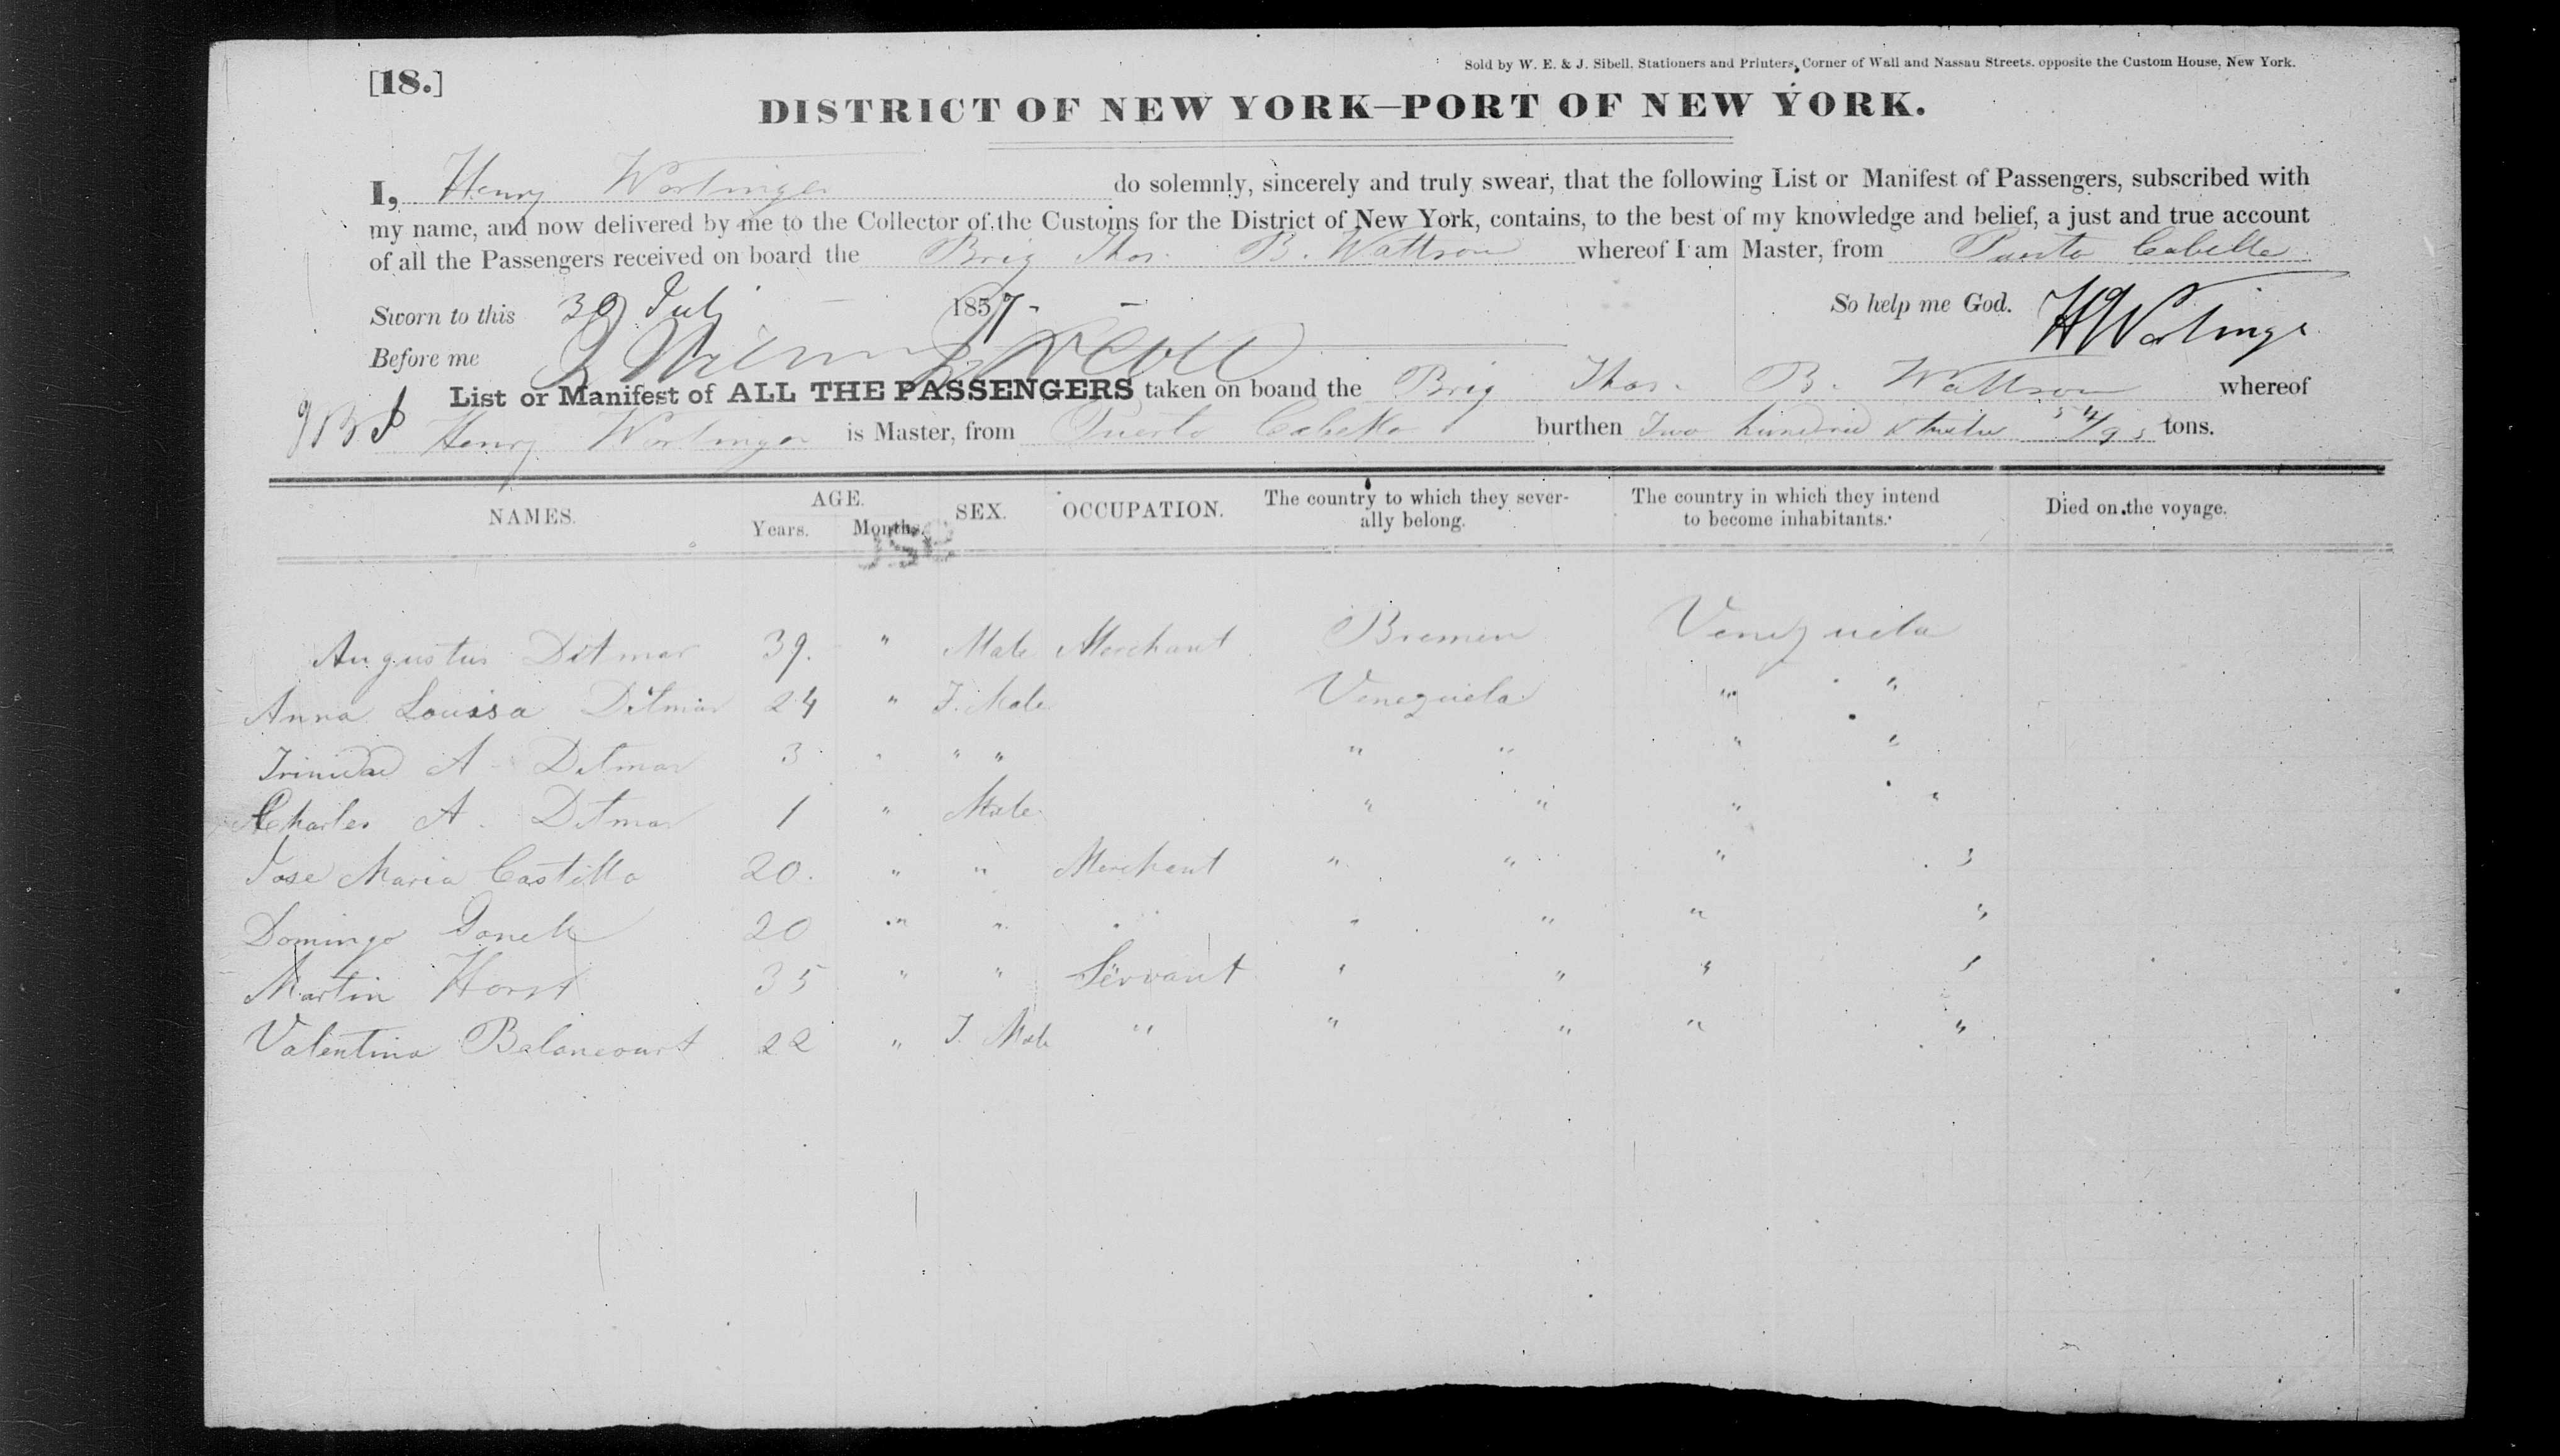 Sold by W. E. & J. Sibell, Stationers and Printers, Corner of Wall and Nassau Streets. opposite the Custom House, New York.
[18.]
DISTRICT OF NEW YORK—PORT OF NEW YORK.
I, Henry Wortinger do solemnly, sincerely and truly swear, that the following List or Manifest of Passengers, subscribed with
my name, and now delivered by me to the Collector of the Customs for the District of New York, contains, to the best of my knowledge and belief, a just and true account
of all the Passengers received on board the Brig Thos. B. Wattson whereof I am Master, from Puerto Cabello
Sworn to this 30 July 1857 So help me God. H Wortinger
Before me
List or Manifest of ALL THE PASSENGERS taken on board the Brig Thos. B. Wattson whereof
Henry Wortinger is Master, from Puerto Cabello burthen Two hundred & twelve 54/95 tons.
NAMES. AGE. Years. Months. SEX. OCCUPATION. The country to which they sever-ally belong. The country in which they intend to become inhabitants. Died on the voyage.
Augustus Ditmar 39. " Male Merchant Bremen Venezuela
Anna Louisa Ditmar 24 " F. Male Venezuela " "
Trinidad A Ditmar 3 " " " " " " "
Charles A. Ditmar 1 " Male " " " "
Jose Maria Castillo 20. " " Merchant " " " "
Domingo 20 " " " " " "
Martin Horst 35 " " Servant " " " "
Valentina Balancourt 22 " F. Male " " " " "